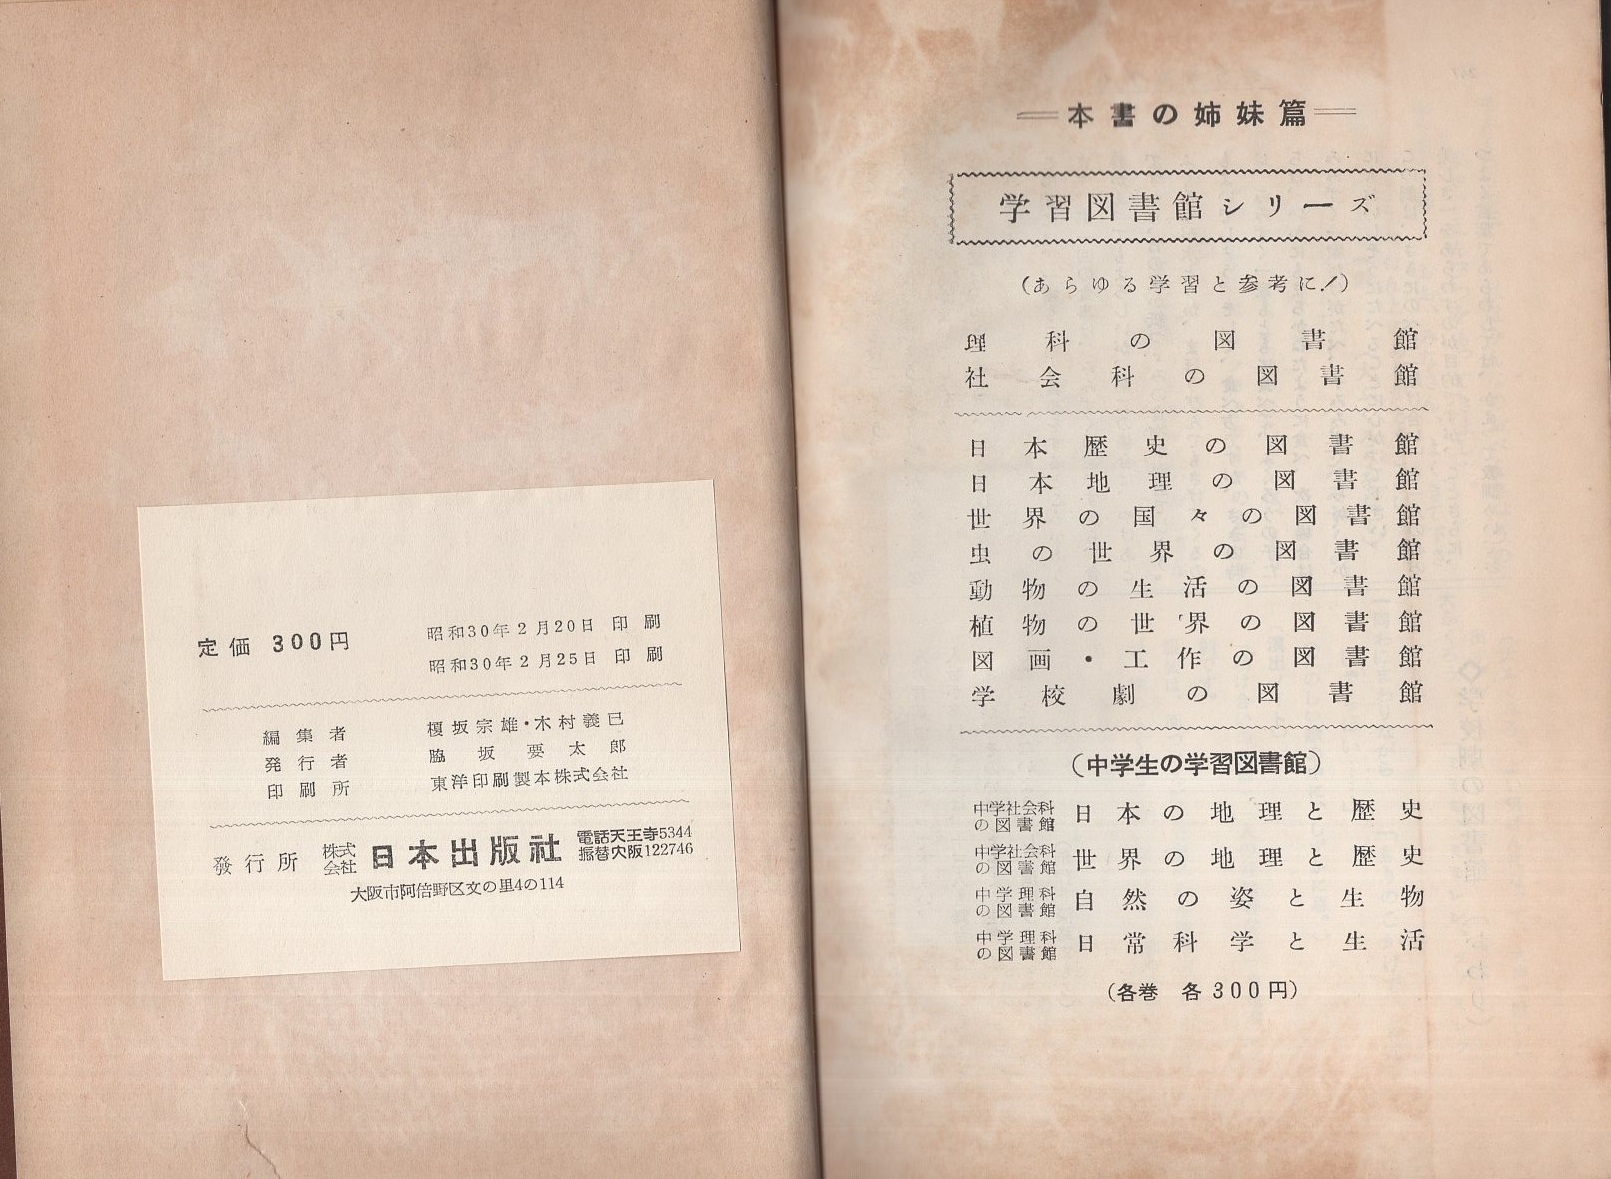 定価 300円
昭和30年2月20日 印刷
昭和30年2月25日 印刷
編集者 榎坂宗雄・木村義巳
発行者 脇坂要太郎
印刷所 東洋印刷製本株式会社
發行所 株式会社 日本出版社 電話天王寺5344 振替大阪122746
大阪市阿倍野区文の里4の114
本書の姉妹篇
学習図書館シリーズ
(あらゆる学習と参考に!)
理科の図書館
社会科の図書館
日本歴史の図書館
日本地理の図書館
世界の国々の図書館
虫の世界の図書館
動物の生活の図書館
植物の世界の図書館
図画・工作の図書館
学校劇の図書館
(中学生の学習図書館)
中学社会科の図書館 日本の地理と歴史
中学社会科の図書館 世界の地理と歴史
中学理科の図書館 自然の姿と生物
中学理科の図書館 日常科学と生活
(各巻 各300円)